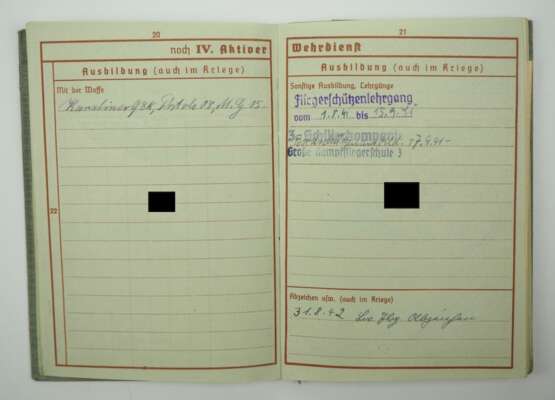 20
noch IV. Aktiver
Ausbildung (auch im Kriege)
Mit der Waffe
Karabiner 98k, Pistole 08, M.G. 15.
22
21
Wehrdienst
Ausbildung (auch im Kriege)
Sonstige Ausbildung, Lehrgänge
Fliegerschützenlehrgang
vom 1.8.41 bis 15.9.41
3. Schülerkompanie
17.9.41-
Große Kampffliegerschule 3
Abzeichen usw. (auch im Kriege)
31.8.42